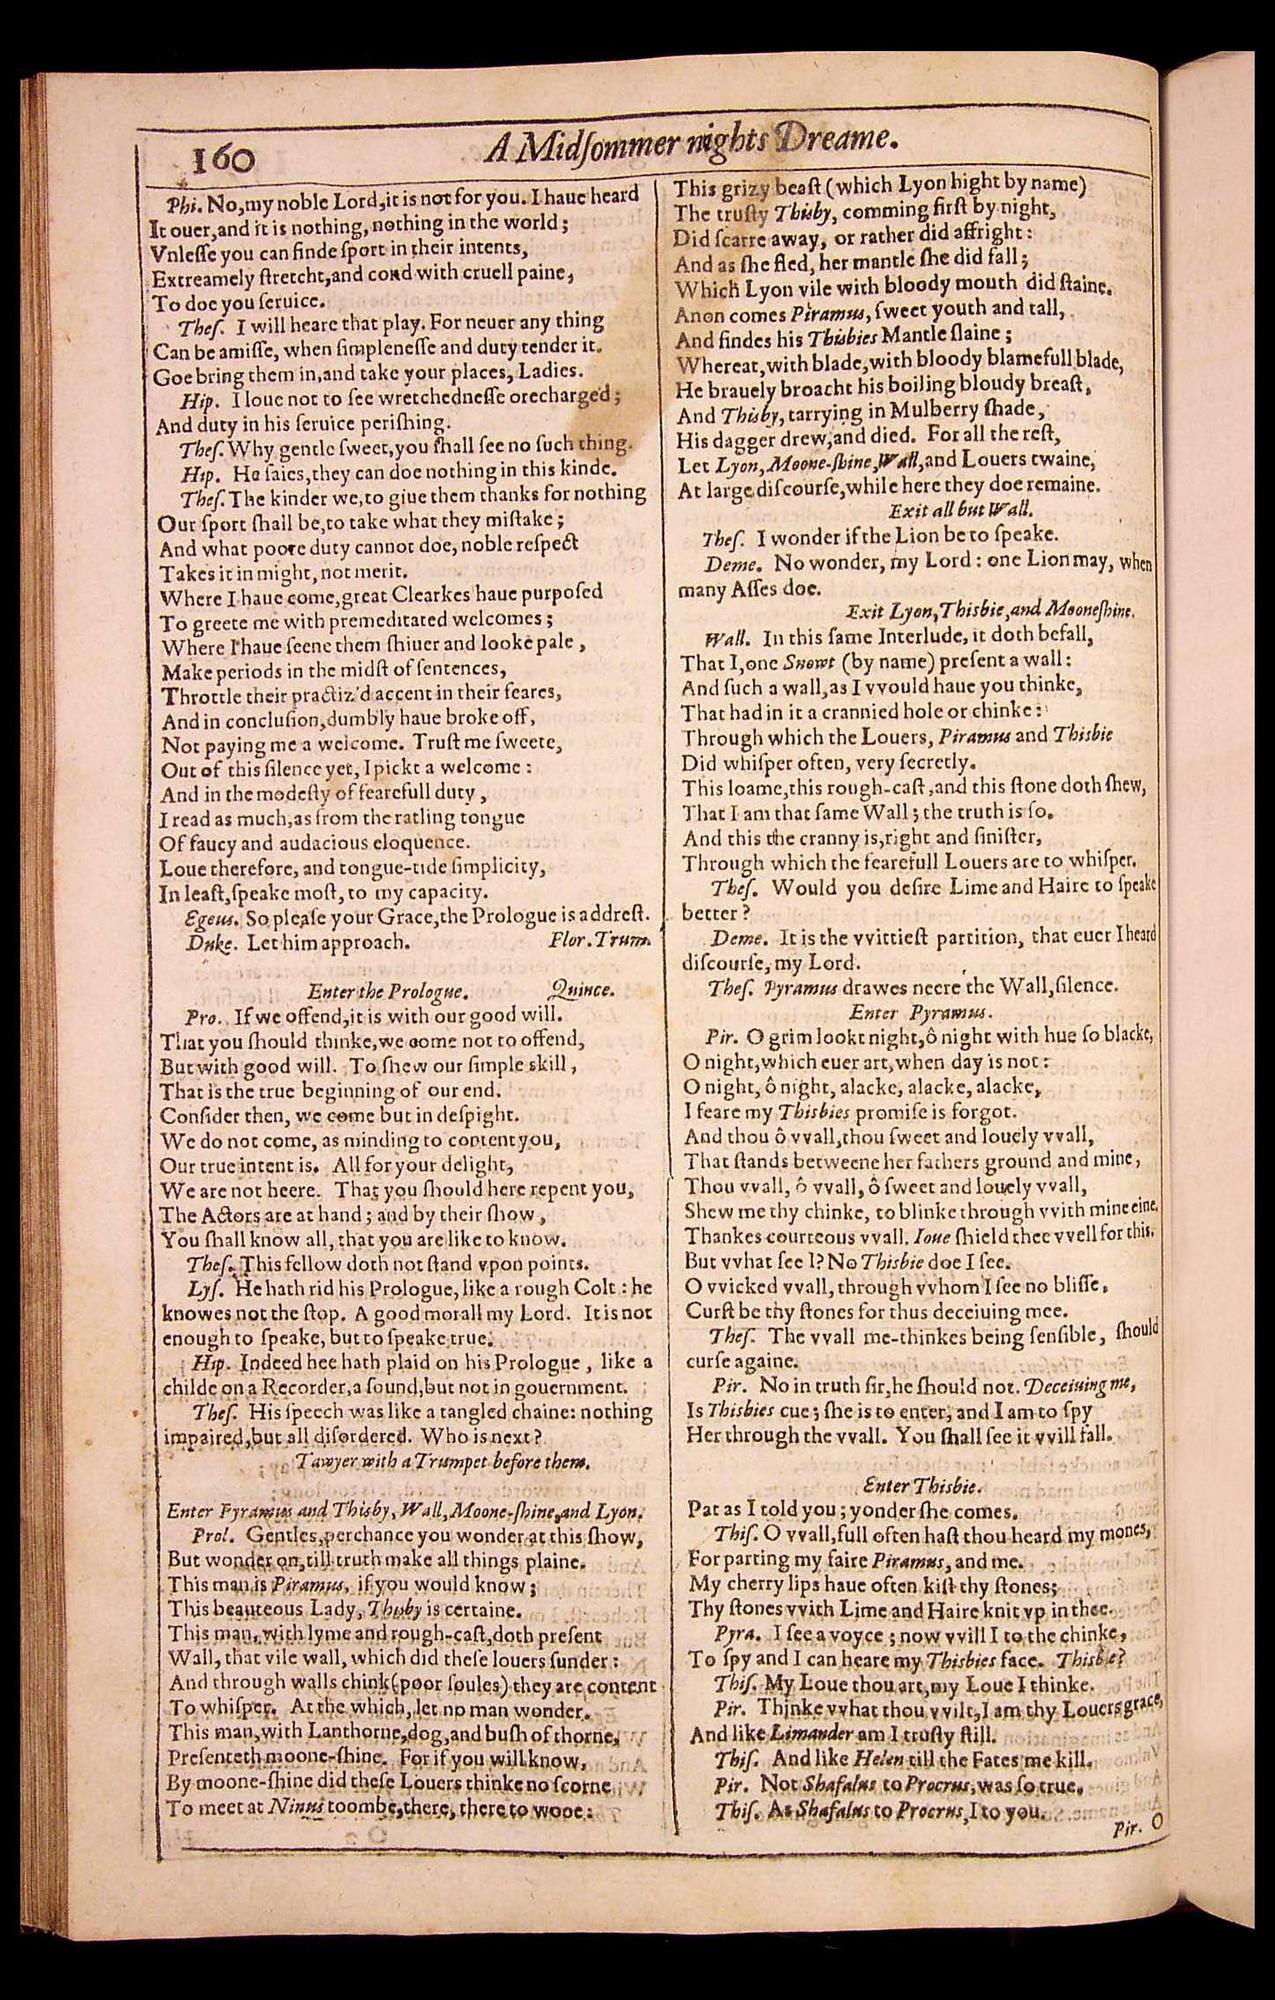 160
A Midſommer nights Dreame.
Phi. No, my noble Lord, it is not for you. I haue heard
It ouer, and it is nothing, nothing in the world;
Vnleſſe you can finde ſport in their intents,
Extreamely ſtretcht, and cond with cruell paine,
To doe you ſeruice.
Theſ. I will heare that play. For neuer any thing
Can be amiſſe, when ſimpleneſſe and duty tender it.
Goe bring them in, and take your places, Ladies.
Hip. I loue not to ſee wretchedneſſe orecharged;
And duty in his ſeruice periſhing.
Theſ. Why gentle ſweet, you ſhall ſee no ſuch thing.
Hip. He ſaies, they can doe nothing in this kinde.
Theſ. The kinder we, to giue them thanks for nothing
Our ſport ſhall be, to take what they miſtake;
And what poore duty cannot doe, noble reſpect
Takes it in might, not merit.
Where I haue come, great Clearkes haue purpoſed
To greete me with premeditated welcomes;
Where I haue ſeene them ſhiuer and looke pale,
Make periods in the midſt of ſentences,
Throttle their practiz'd accent in their feares,
And in concluſion, dumbly haue broke off,
Not paying me a welcome. Truſt me ſweete,
Out of this ſilence yet, I pickt a welcome:
And in the modeſty of fearefull duty,
I read as much, as from the ratling tongue
Of ſaucy and audacious eloquence.
Loue therefore, and tongue-tide ſimplicity,
In leaſt, ſpeake moſt, to my capacity.
Egeus. So pleaſe your Grace, the Prologue is addreſt.
Duke. Let him approach. Flor. Trum.
Enter the Prologue. Quince.
Pro. If we offend, it is with our good will.
That you ſhould thinke, we come not to offend,
But with good will. To ſhew our ſimple skill,
That is the true beginning of our end.
Conſider then, we come but in deſpight.
We do not come, as minding to content you,
Our true intent is. All for your delight,
We are not heere. That you ſhould here repent you,
The Actors are at hand; and by their ſhow,
You ſhall know all, that you are like to know.
Theſ. This fellow doth not ſtand vpon points.
Lyſ. He hath rid his Prologue, like a rough Colt: he
knowes not the ſtop. A good morall my Lord. It is not
enough to ſpeake, but to ſpeake true.
Hip. Indeed hee hath plaid on his Prologue, like a
childe on a Recorder, a ſound, but not in gouernment.
Theſ. His ſpeech was like a tangled chaine: nothing
impaired, but all diſordered. Who is next?
Tawyer with a Trumpet before them.
Enter Pyramus and Thisby, Wall, Moone-ſhine, and Lyon.
Prol. Gentles, perchance you wonder at this ſhow,
But wonder on, till truth make all things plaine.
This man is Piramus, if you would know;
This beauteous Lady, Thisby is certaine.
This man, with lyme and rough-caſt, doth preſent
Wall, that vile wall, which did theſe louers ſunder:
And through walls chink (poor ſoules) they are content
To whiſper. At the which, let no man wonder.
This man, with Lanthorne, dog, and buſh of thorne,
Preſenteth moone-ſhine. For if you will know,
By moone-ſhine did theſe Louers thinke no ſcorne
To meet at Ninus toombe, there, there to wooe:
This grizy beaſt (which Lyon hight by name)
The truſty Thisby, comming firſt by night,
Did ſcarre away, or rather did affright:
And as ſhe fled, her mantle ſhe did fall;
Which Lyon vile with bloody mouth did ſtaine.
Anon comes Piramus, ſweet youth and tall,
And findes his Thisbies Mantle ſlaine;
Whereat, with blade, with bloody blamefull blade,
He brauely broacht his boiling bloudy breaſt,
And Thisby, tarrying in Mulberry ſhade,
His dagger drew, and died. For all the reſt,
Let Lyon, Moone-ſhine, Wall, and Louers twaine,
At large diſcourſe, while here they doe remaine.
Exit all but Wall.
Theſ. I wonder if the Lion be to ſpeake.
Deme. No wonder, my Lord: one Lion may, when
many Aſſes doe.
Exit Lyon, Thisbie, and Mooneſhine.
Wall. In this ſame Interlude, it doth befall,
That I, one Snowt (by name) preſent a wall:
And ſuch a wall, as I vvould haue you thinke,
That had in it a crannied hole or chinke:
Through which the Louers, Piramus and Thisbie
Did whiſper often, very ſecretly.
This loame, this rough-caſt, and this ſtone doth ſhew,
That I am that ſame Wall; the truth is ſo.
And this the cranny is, right and ſiniſter,
Through which the fearefull Louers are to whiſper.
Theſ. Would you deſire Lime and Haire to ſpeake
better?
Deme. It is the vvittieſt partition, that euer I heard
diſcourſe, my Lord.
Theſ. Pyramus drawes neere the Wall, ſilence.
Enter Pyramus.
Pir. O grim lookt night, ô night with hue ſo blacke,
O night, which euer art, when day is not:
O night, ô night, alacke, alacke, alacke,
I feare my Thisbies promiſe is forgot.
And thou ô vvall, thou ſweet and louely vvall,
That ſtands betweene her fathers ground and mine,
Thou vvall, ô vvall, ô ſweet and louely vvall,
Shew me thy chinke, to blinke through vvith mine eine.
Thankes courteous vvall. Ioue ſhield thee vvell for this.
But vvhat ſee I? No Thisbie doe I ſee.
O vvicked vvall, through vvhom I ſee no bliſſe,
Curſt be thy ſtones for thus deceiuing mee.
Theſ. The vvall me-thinkes being ſenſible, ſhould
curſe againe.
Pir. No in truth ſir, he ſhould not. Deceiuing me,
Is Thisbies cue; ſhe is to enter, and I am to ſpy
Her through the vvall. You ſhall ſee it vvill fall.
Enter Thisbie.
Pat as I told you; yonder ſhe comes.
Thiſ. O vvall, full often haſt thou heard my mones,
For parting my faire Piramus, and me.
My cherry lips haue often kiſt thy ſtones;
Thy ſtones vvith Lime and Haire knit vp in thee.
Pyra. I ſee a voyce; now vvill I to the chinke,
To ſpy and I can heare my Thisbies face. Thisbie?
Thiſ. My Loue thou art, my Loue I thinke.
Pir. Thinke vvhat thou vvilt, I am thy Louers grace,
And like Limander am I truſty ſtill.
Thiſ. And like Helen till the Fates me kill.
Pir. Not Shafalus to Procrus, was ſo true.
Thiſ. As Shafalus to Procrus, I to you.
Pir. O